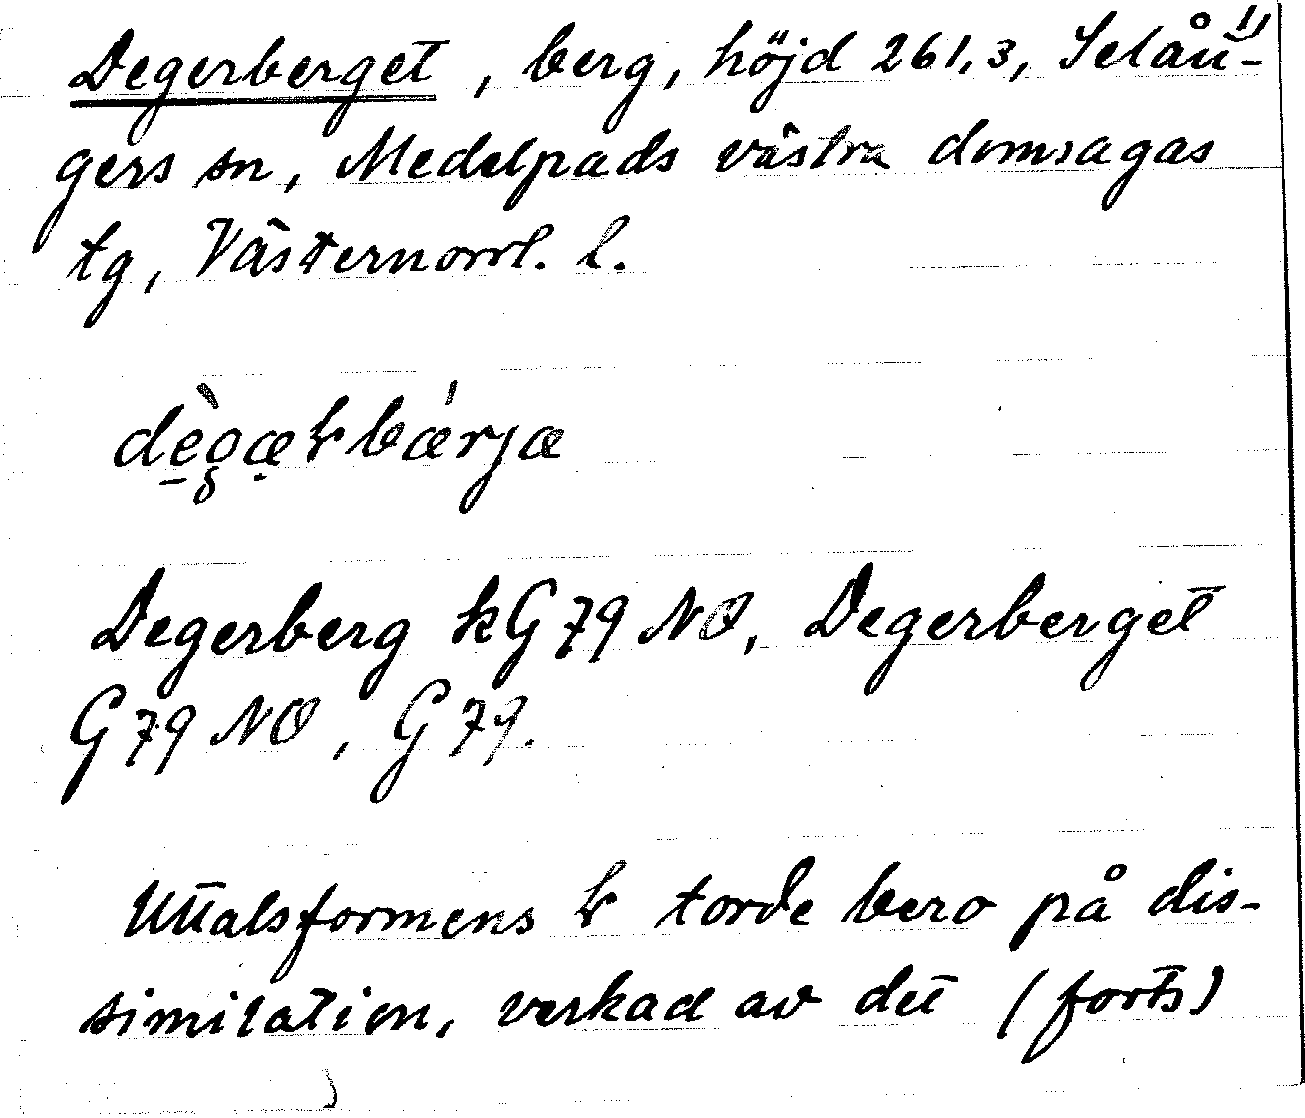 Degerberget, berg, höjd 261,3, Selån- 1)
gers sn, Medelpads västra domsagas
tg, Västernorrl. l.
Degerberg kG79 NO, Degerberget
G79 NO, G79.
Uttalsformens ł torde bero på dis-
similation, verkad av det (forts)